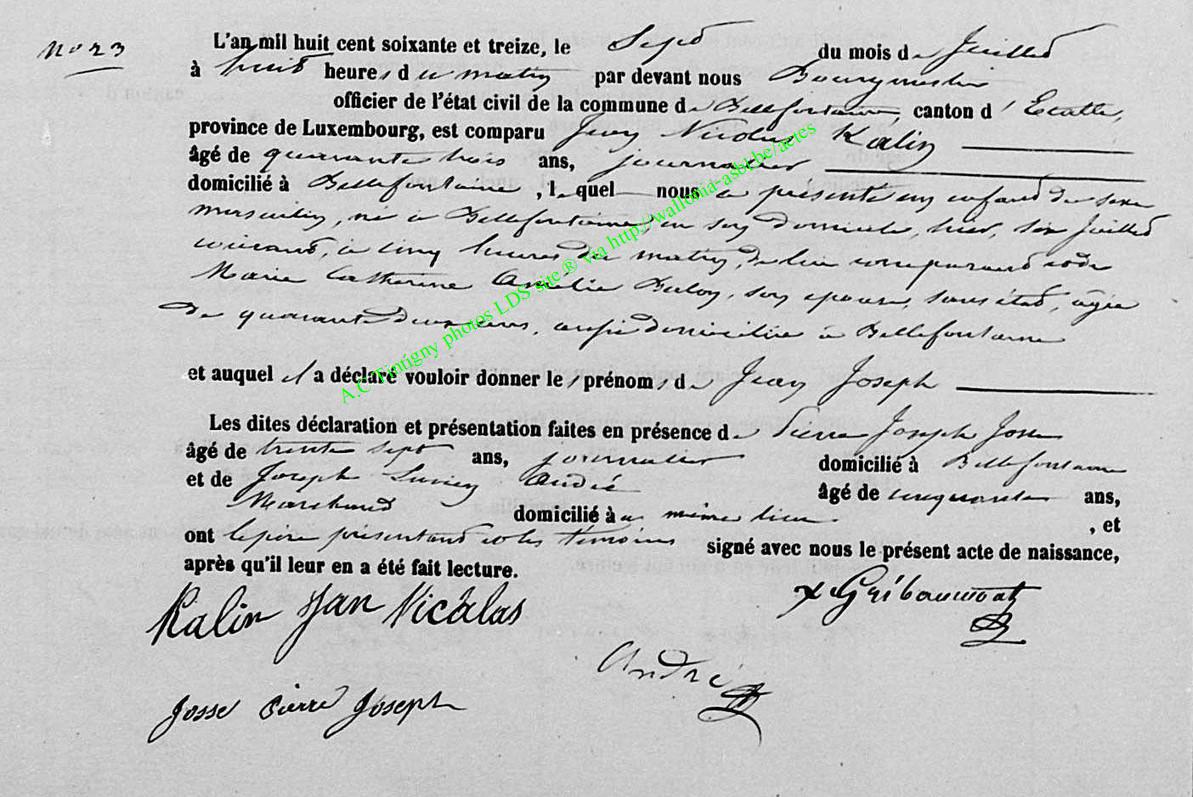 N° 23
L'an mil huit cent soixante et treize, le Sept du mois de Juillet
à huit heures du matin par devant nous Bourgmestre
officier de l'état civil de la commune de Bellefontaine, canton d'Etalle,
province de Luxembourg, est comparu Jean Nicolas Kalin
âgé de quarante trois ans, journalier
domicilié à Bellefontaine, lequel nous a présenté un enfant du sexe
masculin, né à Bellefontaine, en son domicile, hier, six Juillet
courant, à cinq heures du matin, de lui comparant et de
Marie Catherine Amélie, son épouse, sans état, âgée
de quarante deux ans, aussi domiciliée à Bellefontaine
et auquel il a déclaré vouloir donner les prénoms de Jean Joseph
Les dites déclaration et présentation faites en présence de Pierre Joseph Josse
âgé de trente sept ans, journalier domicilié à Bellefontaine
et de Joseph Lucien André âgé de cinquante ans,
Marchand domicilié à même lieu, et
ont le père présentant et les témoins signé avec nous le présent acte de naissance,
après qu'il leur en a été fait lecture.
Kalin Jan Nicolas
x Gribaumont
André
Josse Pierre Joseph
A.C Tintigny photos LDS site ® via http://wallonia-asbl.be/actes